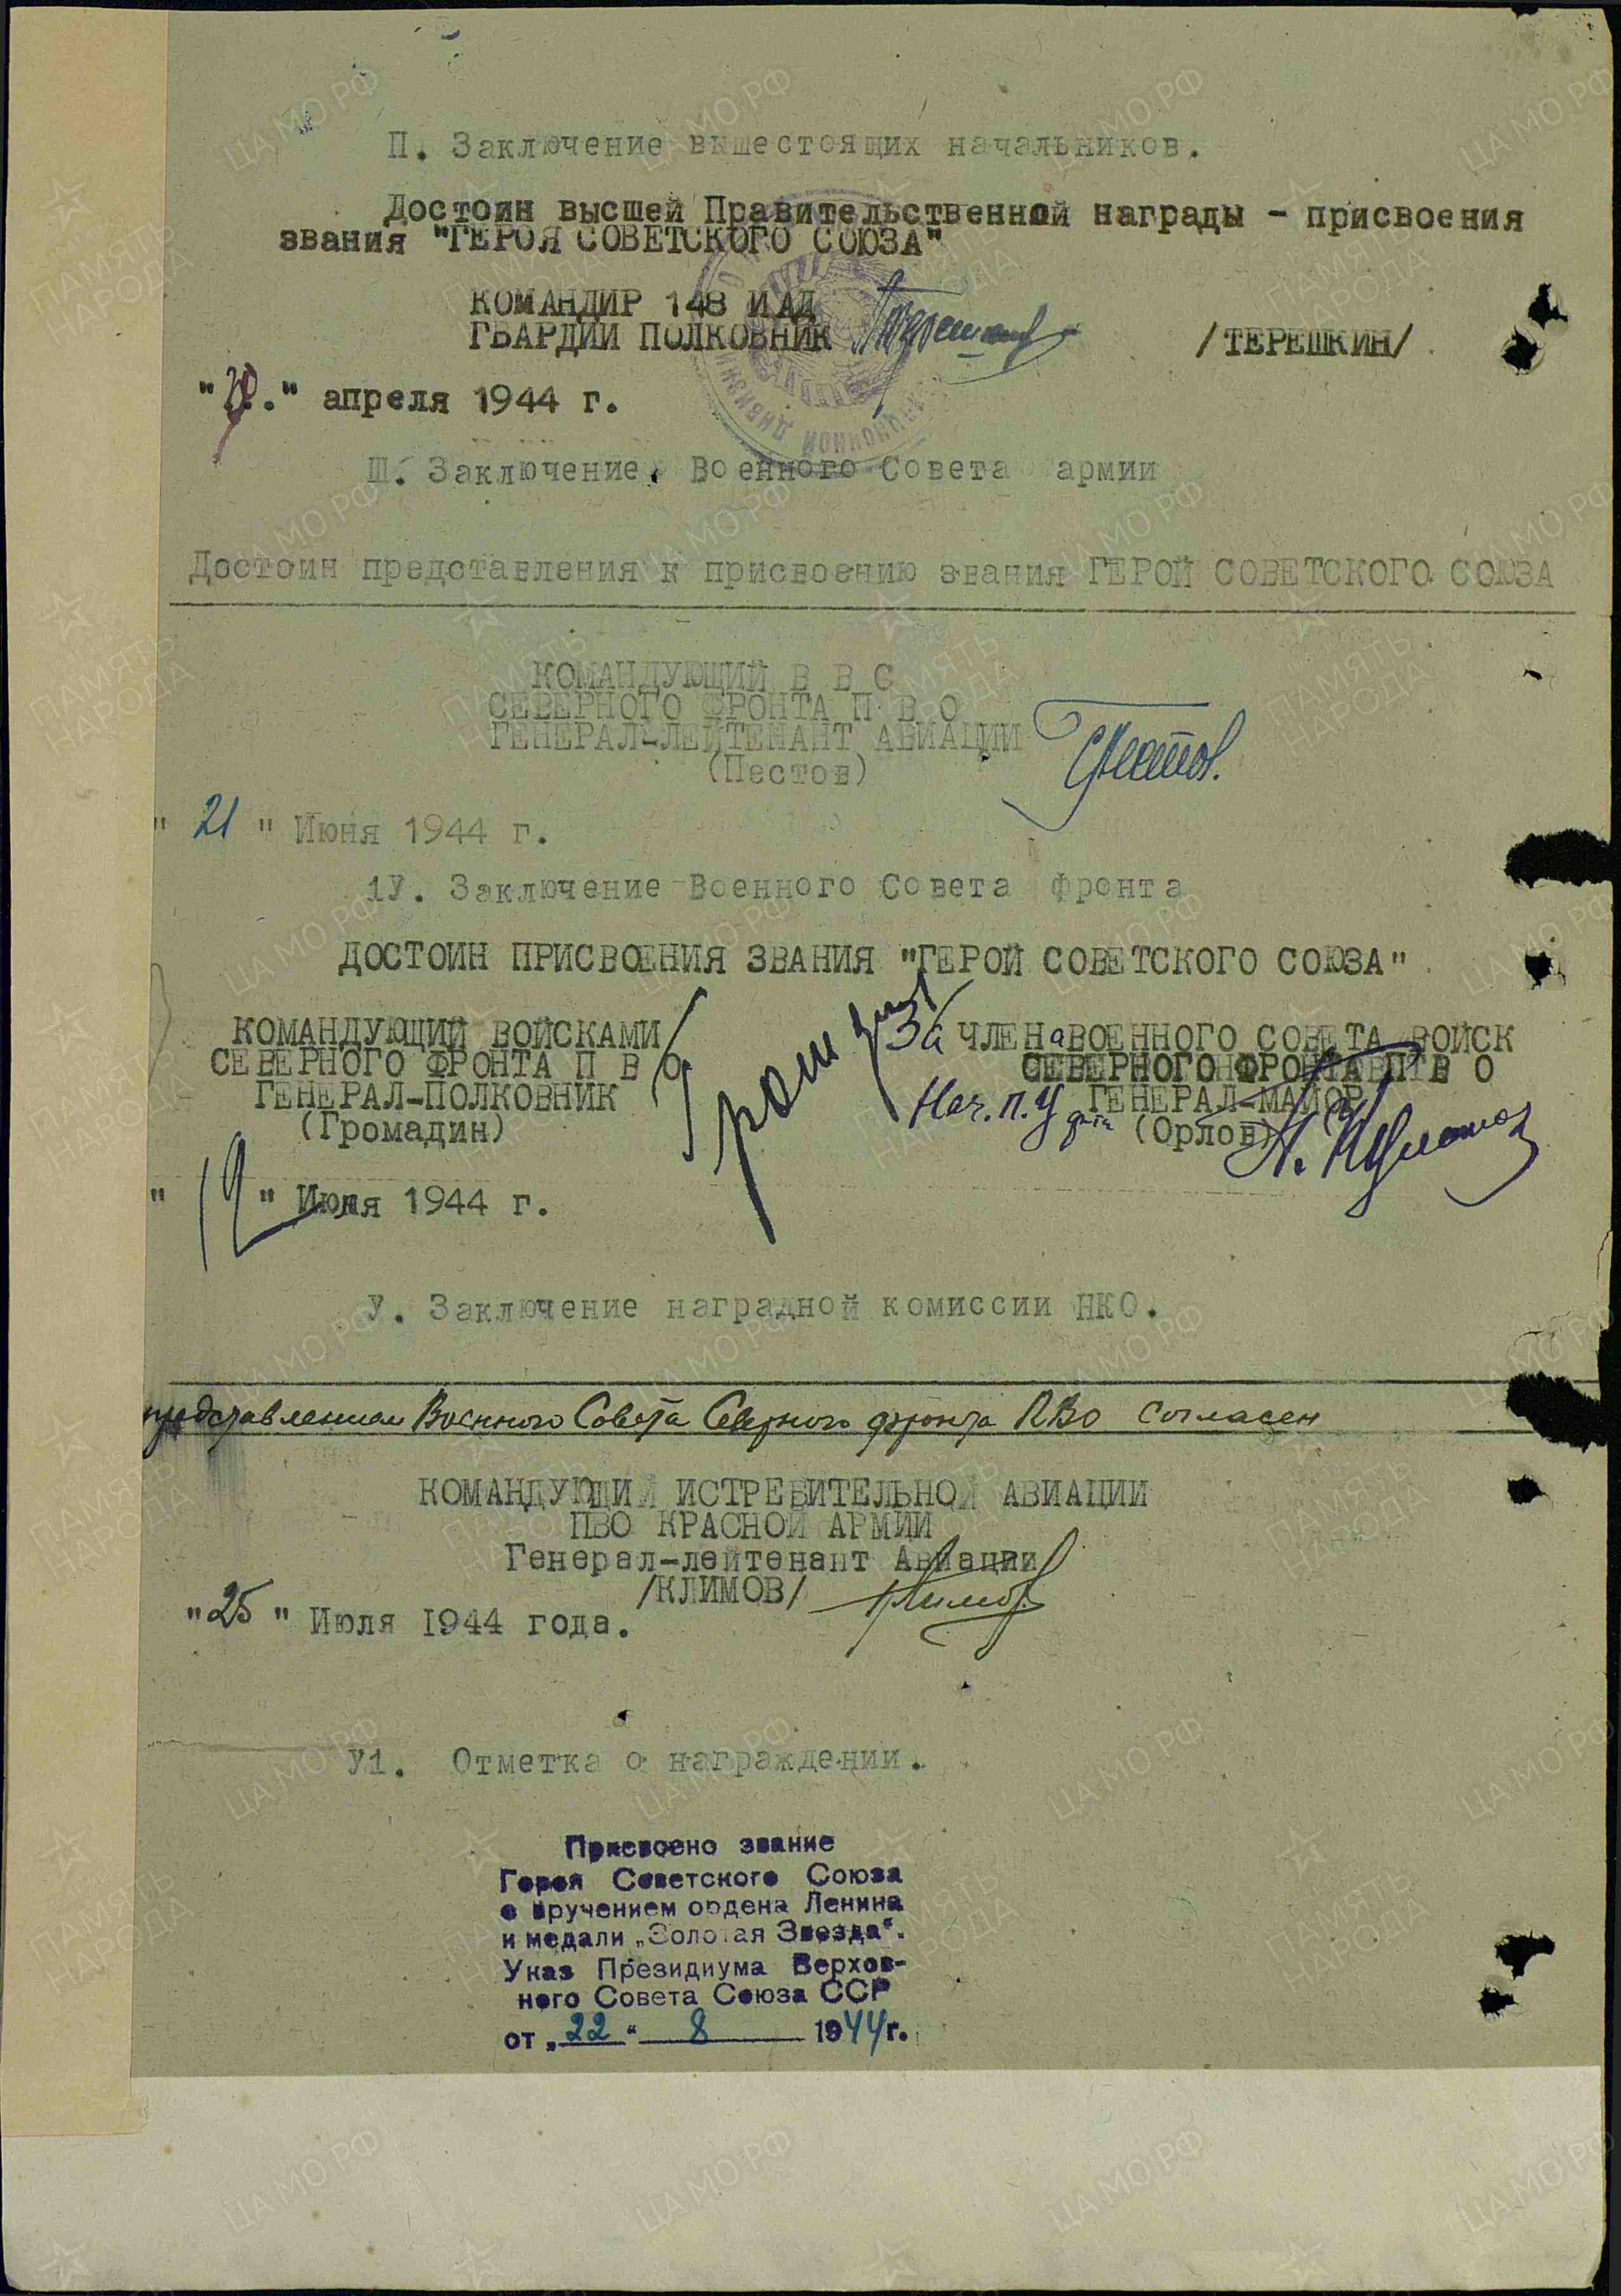 П. Заключение вышестоящих начальников.
Достоин высшей Правительственной награды - присвоения
звания "ГЕРОЯ СОВЕТСКОГО СОЮЗА"
КОМАНДИР 148 ИАД
ГВАРДИИ ПОЛКОВНИК
/ТЕРЕШКИН/
апреля 1944 г.
Ш. Заключение, Военного Совета армии
Достоин представления к присвоению звания ГЕРОЙ СОВЕТСКОГО СОЮЗА
КОМАНДУЮЩИЙ В В С
СЕВЕРНОГО ФРОНТА П В О
ГЕНЕРАЛ-ЛЕЙТЕНАНТ АВИАЦИИ
(Пестов)
" 21 " Июня 1944 г.
1У. Заключение Военного Совета Фронта
ДОСТОИН ПРИСВОЕНИЯ ЗВАНИЯ "ГЕРОЙ СОВЕТСКОГО СОЮЗА"
КОМАНДУЮЩИЙ ВОЙСКАМИ
СЕВЕРНОГО ФРОНТА П В О
ГЕНЕРАЛ-ПОЛКОВНИК
(Громадин)
За ЧЛЕНа ВОЕННОГО СОВЕТА ВОЙСК
СЕВЕРНОГО ФРОНТА П В О
Нач. П.У ГЕНЕРАЛ-МАЙОР
(Орлов)
" 12 " Июля 1944 г.
У. Заключение наградной комиссии НКО.
представлением Военного Совета Северного фронта ПВО согласен
КОМАНДУЮЩИЙ ИСТРЕБИТЕЛЬНОЙ АВИАЦИИ
ПВО КРАСНОЙ АРМИИ
Генерал-лейтенант Авиации
/КЛИМОВ/
"25" Июля 1944 года.
У1. Отметка о награждении.
Присвоено звание
Героя Советского Союза
с вручением ордена Ленина
и медали „Золотая Звезда“.
Указ Президиума Верхов-
ного Совета Союза ССР
от „22“ 8 1944г.